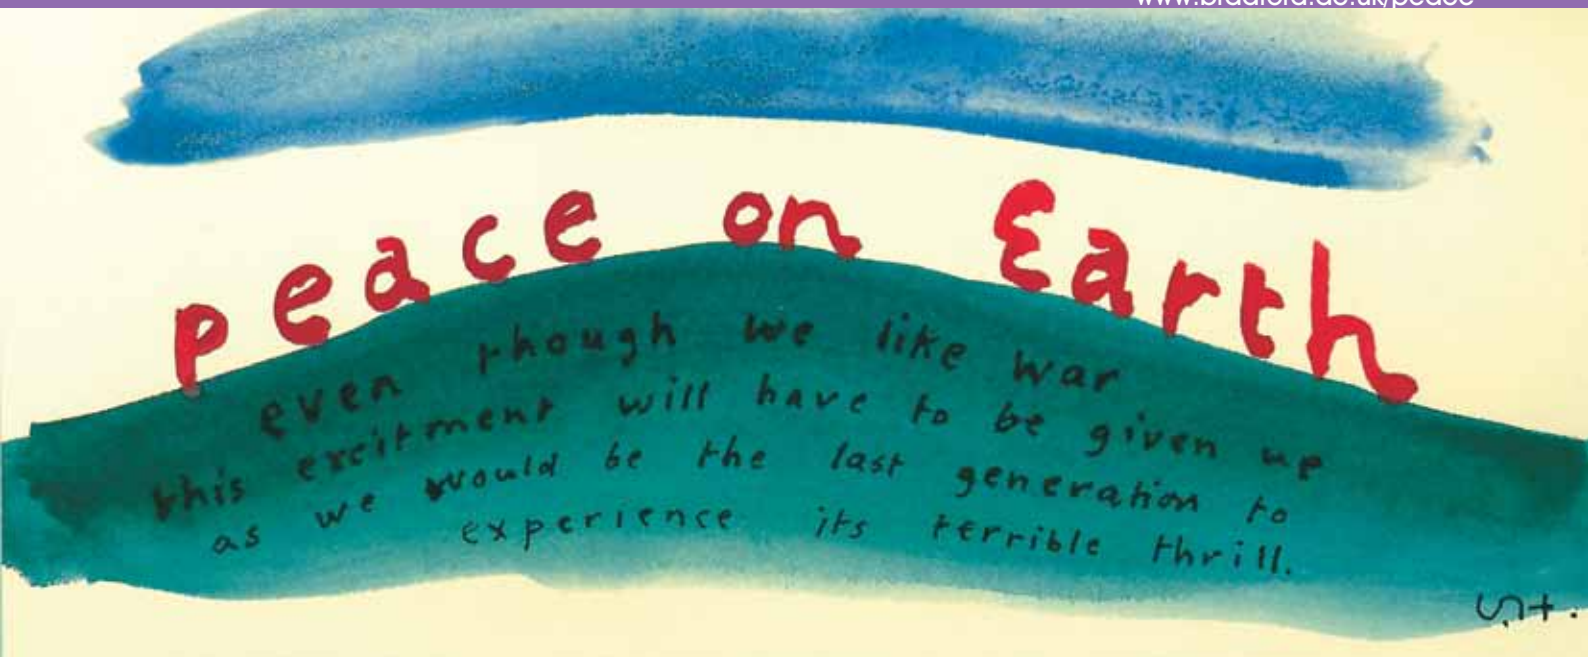 www.bradford.ac.uk/peace
peace on Earth
even though we like war
this excitment will have to be given up
as we would be the last generation to
experience its terrible thrill.